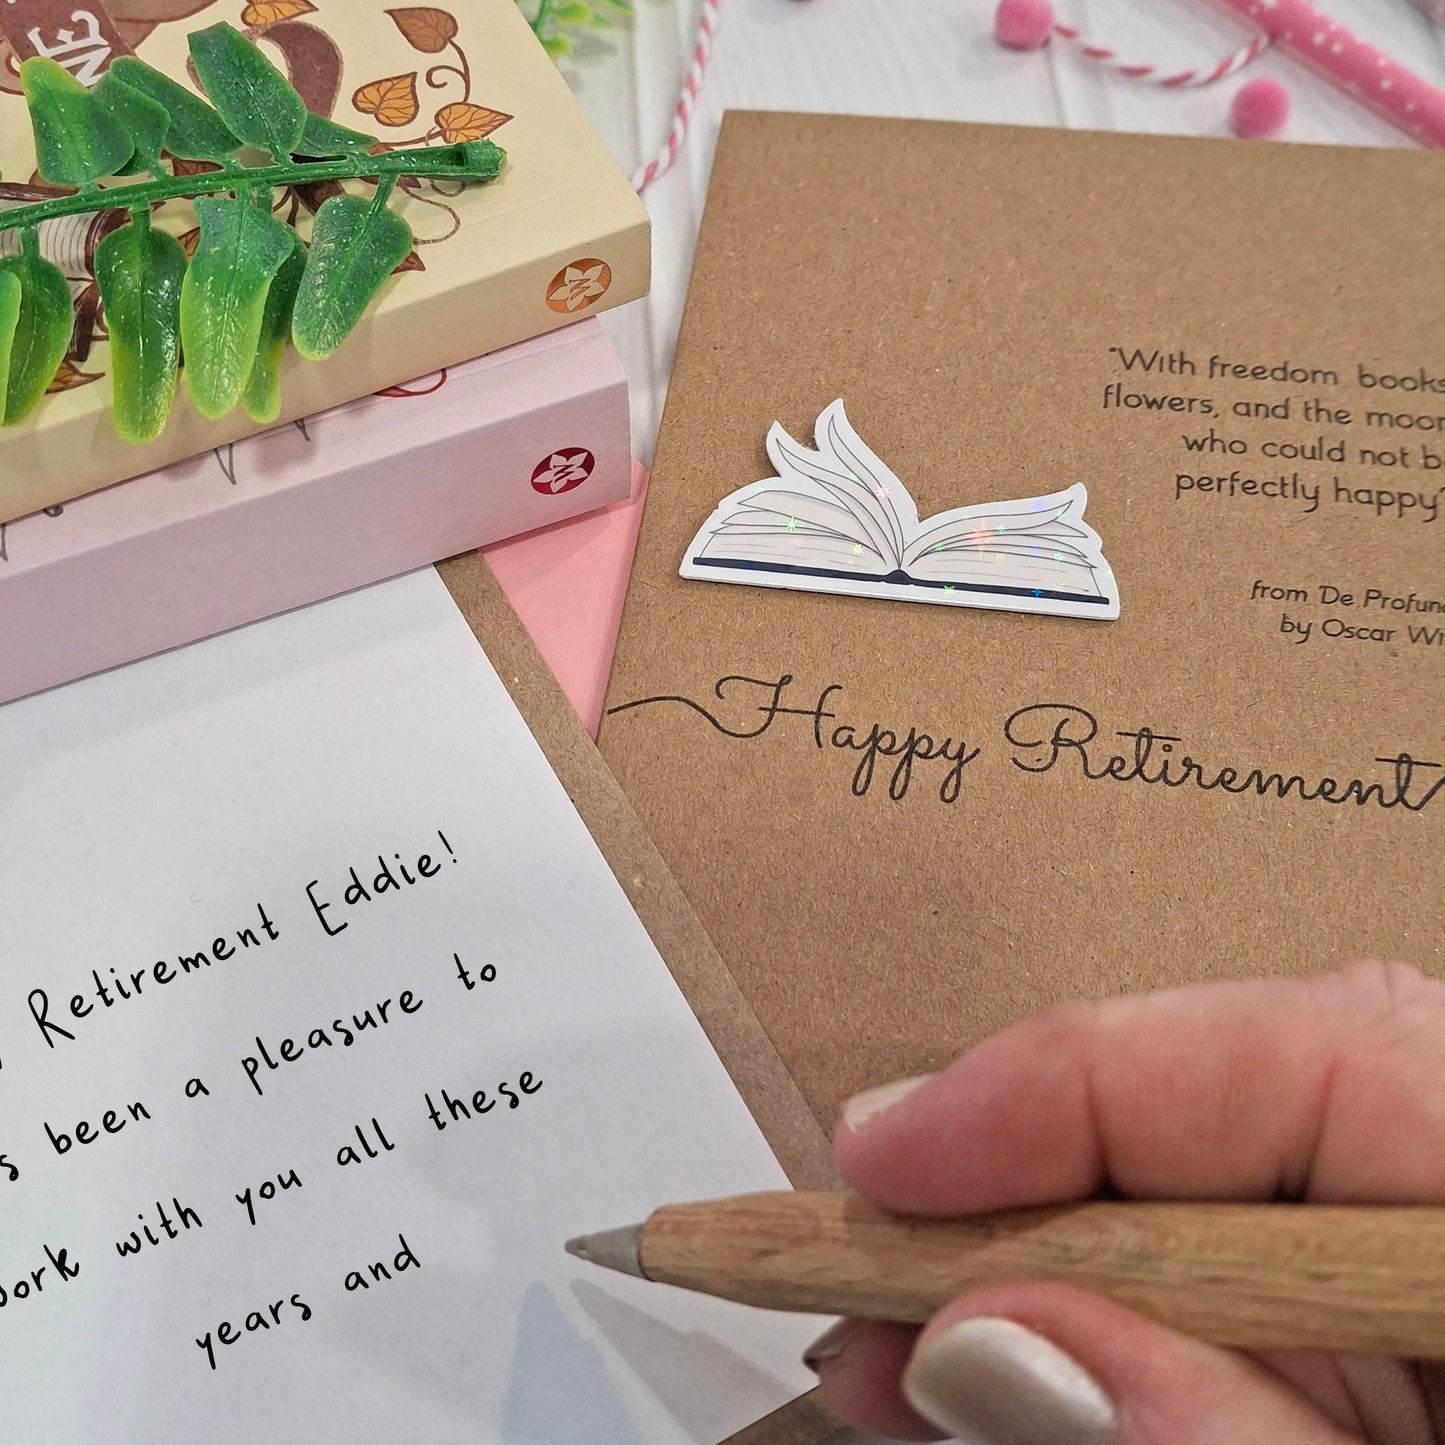 NE
"With freedom books
flowers, and the moon
who could not b
perfectly happy"
from 'De Profun
by Oscar Wi
Happy Retirement
Retirement Eddie!
s been a pleasure to
work with you all these
years and